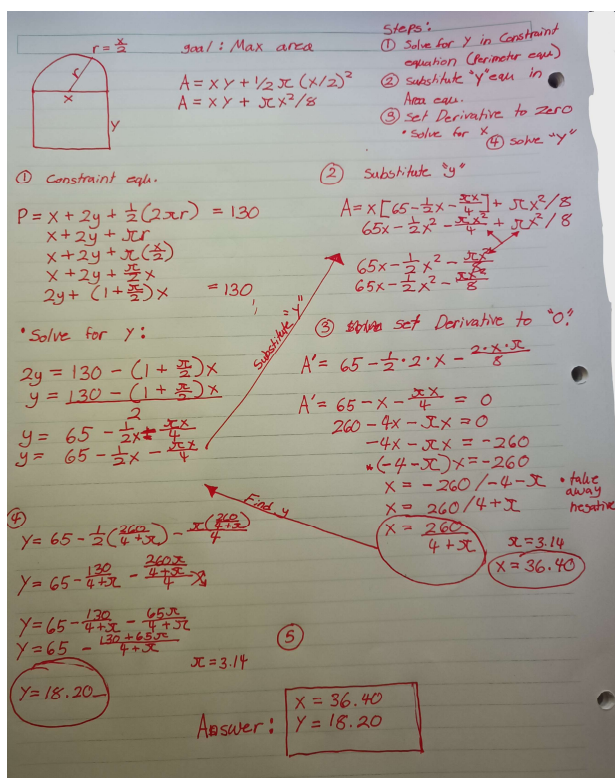 r = x/2
goal : Max area
A = xy + 1/2 π (x/2)²
A = xy + πx²/8
r
x
y
Steps:
① Solve for y in Constraint
equation (Perimeter equ)
② substitute "y" equ in
Area equ.
③ set Derivative to zero
• Solve for x
④ solve "y"
① Constraint equ.
P = x + 2y + 1/2 (2πr) = 130
x + 2y + πr
x + 2y + π(x/2)
x + 2y + π/2 x
2y + (1 + π/2)x = 130
• Solve for y:
2y = 130 - (1 + π/2)x
y = 130 - (1 + π/2)x / 2
y = 65 - 1/2x - πx/4
y = 65 - 1/2x - πx/4
Substitute "y"
② Substitute "y"
A = x[65 - 1/2x - πx/4] + πx²/8
65x - 1/2x² - πx²/4 + πx²/8
65x - 1/2x² - πx²/8
65x - 1/2x² - πx²/8
③ set Derivative to "0".
A' = 65 - 1/2 · 2 · x - 2·x·π/8
A' = 65 - x - πx/4 = 0
260 - 4x - πx = 0
-4x - πx = -260
*(-4 - π)x = -260
x = -260/-4 - π
• take away negative
x = 260/4+π
x = 260/4+π
π = 3.14
x = 36.40
Find y
④
y = 65 - 1/2(260/4+π) - π(260/4+π)/4
y = 65 - 130/4+π - 260π/4+π/4
y = 65 - 130/4+π - 65π/4+π
y = 65 - 130+65π/4+π
π = 3.14
y = 18.20
⑤
Answer:
x = 36.40
y = 18.20